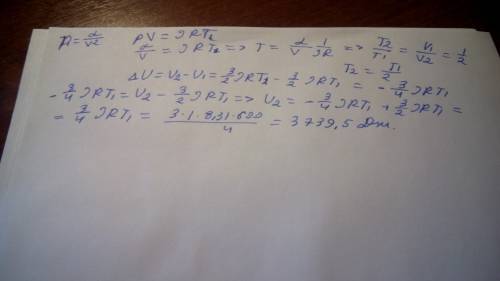 p = α/V²   pV = νRT₂
α/V = νRT₂ => T = α/V 1/νR => T₂/T₁ = V₁/V₂ = 1/2
T₂ = T₁/2
ΔU = U₂ - U₁ = 3/2 νRT₂ - 3/2 νRT₁ = - 3/4 νRT₁
- 3/4 νRT₁ = U₂ - 3/2 νRT₁ => U₂ = - 3/4 νRT₁ + 3/2 νRT₁ =
= 3/4 νRT₁ = 3·1·8,31·600/4 = 3739,5 Дж.